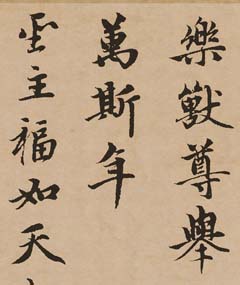 樂獻尊舉
萬斯年
聖主福如天